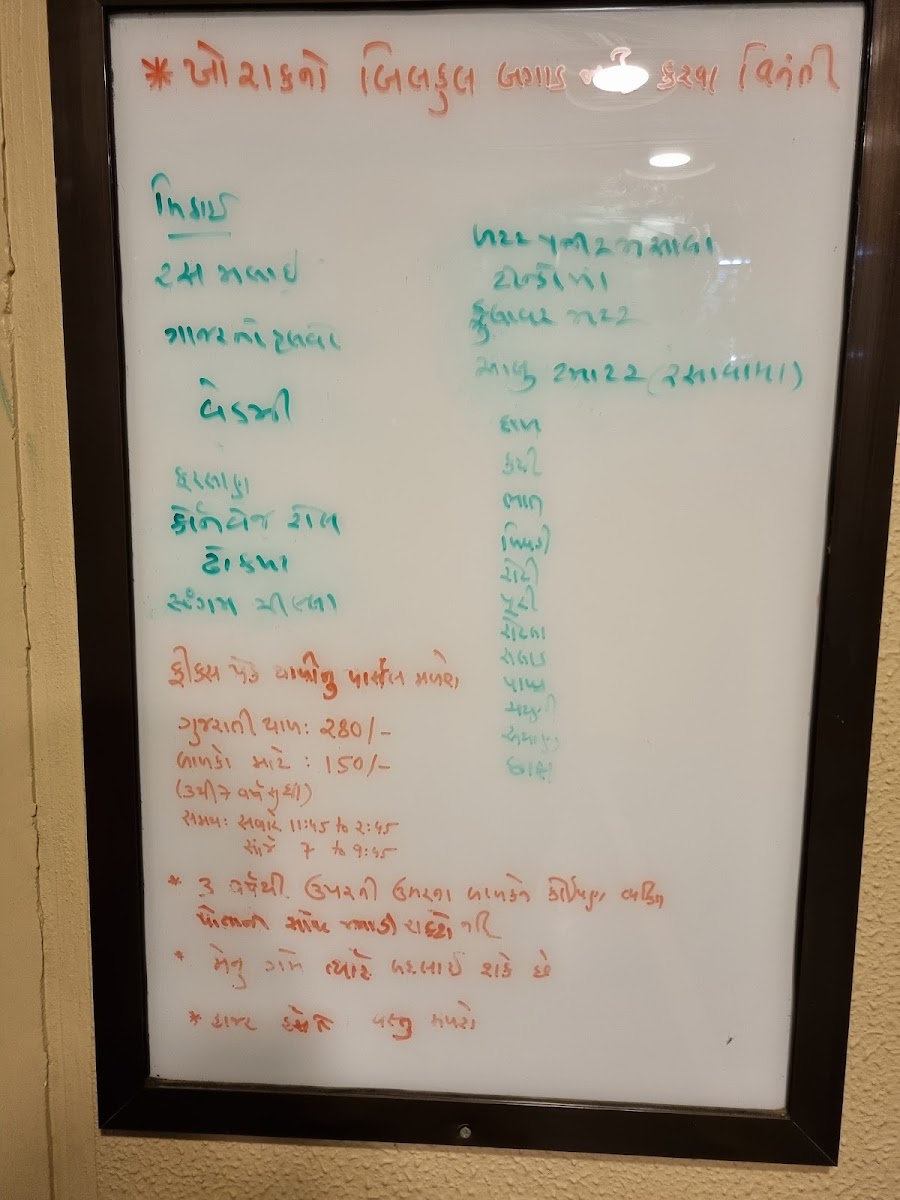 * ખોરાકનો બિલકુલ બગાડ નહી કરવા વિનંતી
મિઠાઈ
રસ મલાઇ
ગાજરનો હલવો
વેડમી
ફરસાણ
કોર્ન વેજ રોલ
ઢોકળા
મટર પનીર મસાલા
ટીન્ડોળા
ફુલાવર મટર
આલુ ટમાટર (રસાવાળા)
દાળ
કઢી
ભાત
ખિચડી
રોટી
પૂરી
રોટલા
સલાડ
પાપડ
ચટણી
અથાણુ
છાસ
ફીક્સ પેક થાળીનુ પાર્સલ મળશે
ગુજરાતી થાળ: ૨80/-
બાળકો માટે : 150/-
(૩થી 7 વર્ષ સુધી)
સમય: સવારે 11:45 to ૨:45
સાંજે 7 to 9:45
* ૩ વર્ષથી ઉપરની ઉંમરના બાળકને કોઈપણ વ્યક્તિ
પોતાની સાથે જમાડી શકશે નહિ
* મેનુ ગમે ત્યારે બદલાઈ શકે છે
* હાજર હશે તે વસ્તુ મળશે